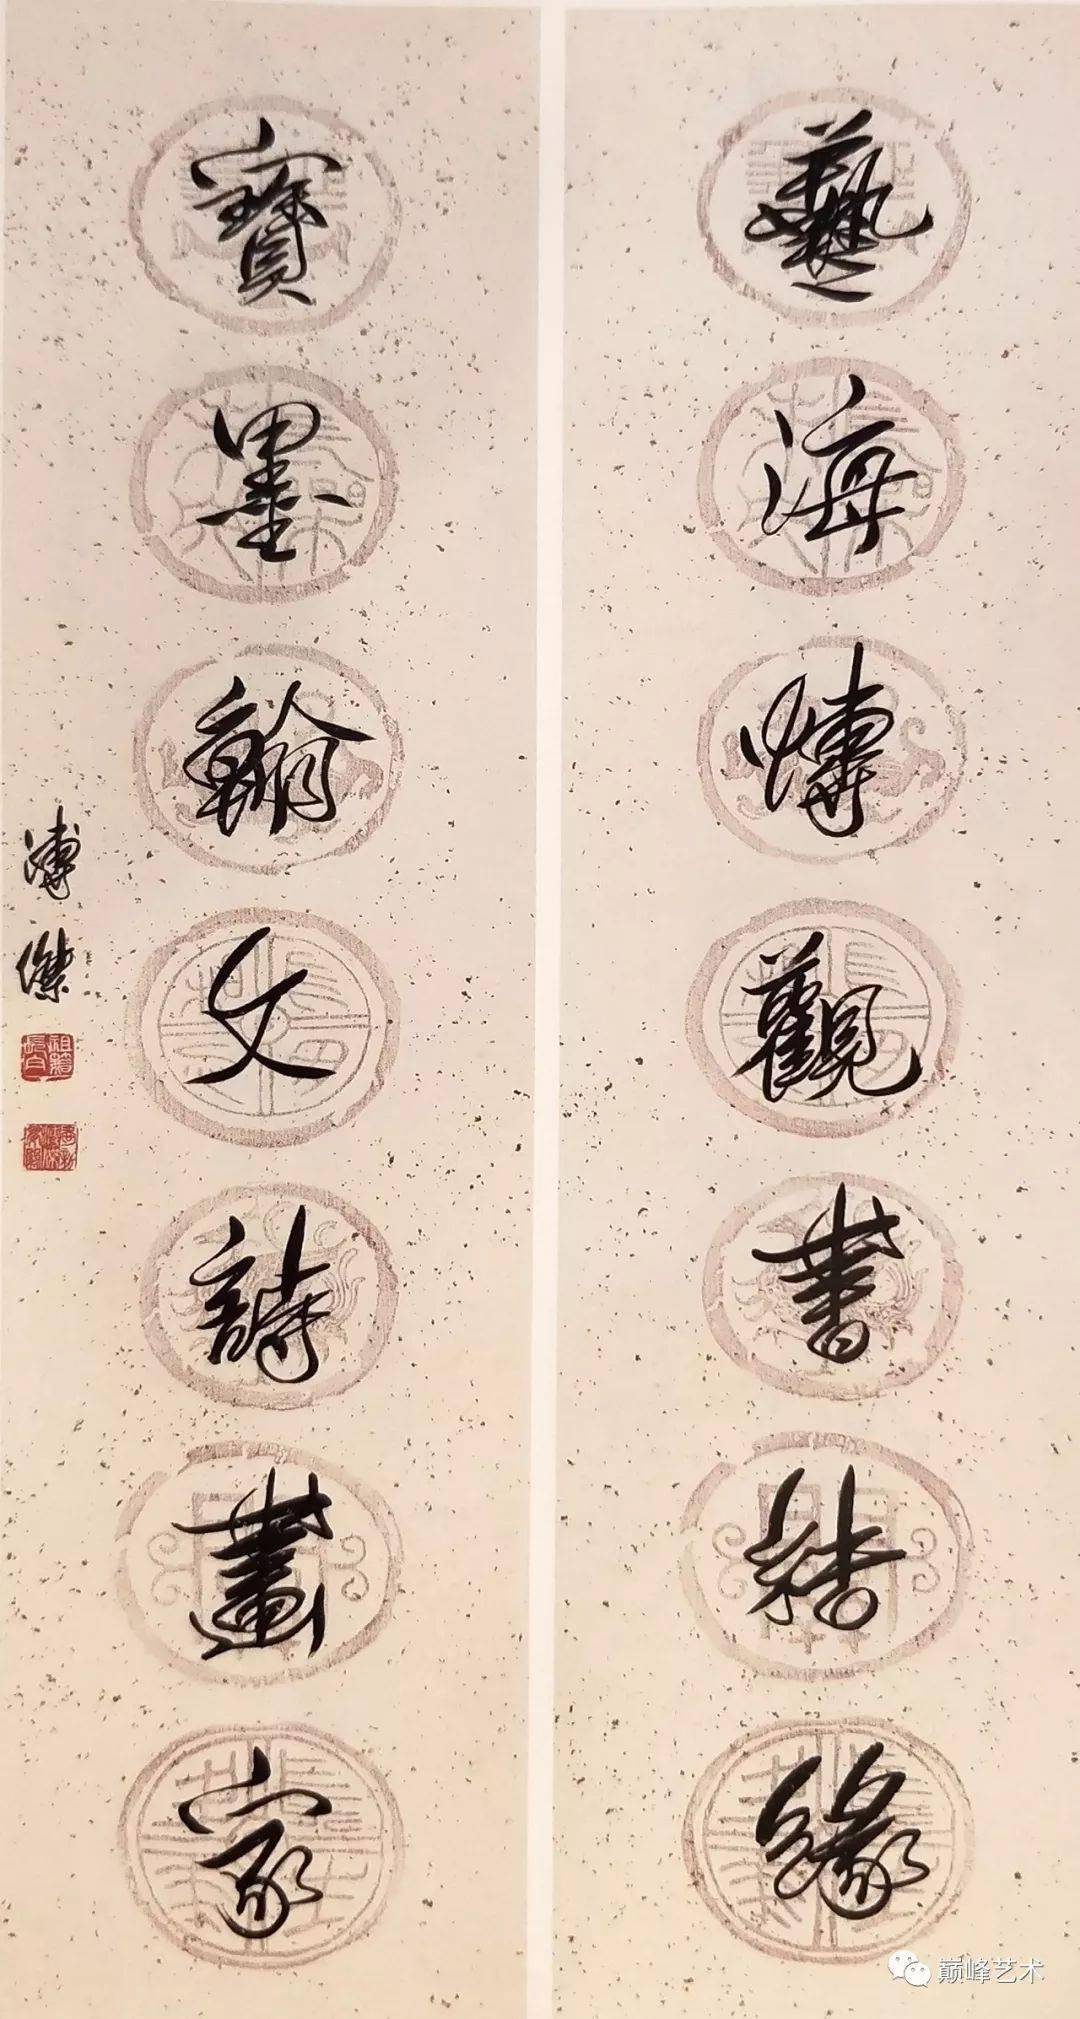 藝海博觀書結緣
寶墨翰文詩畫家
溥傑
巅峰艺术